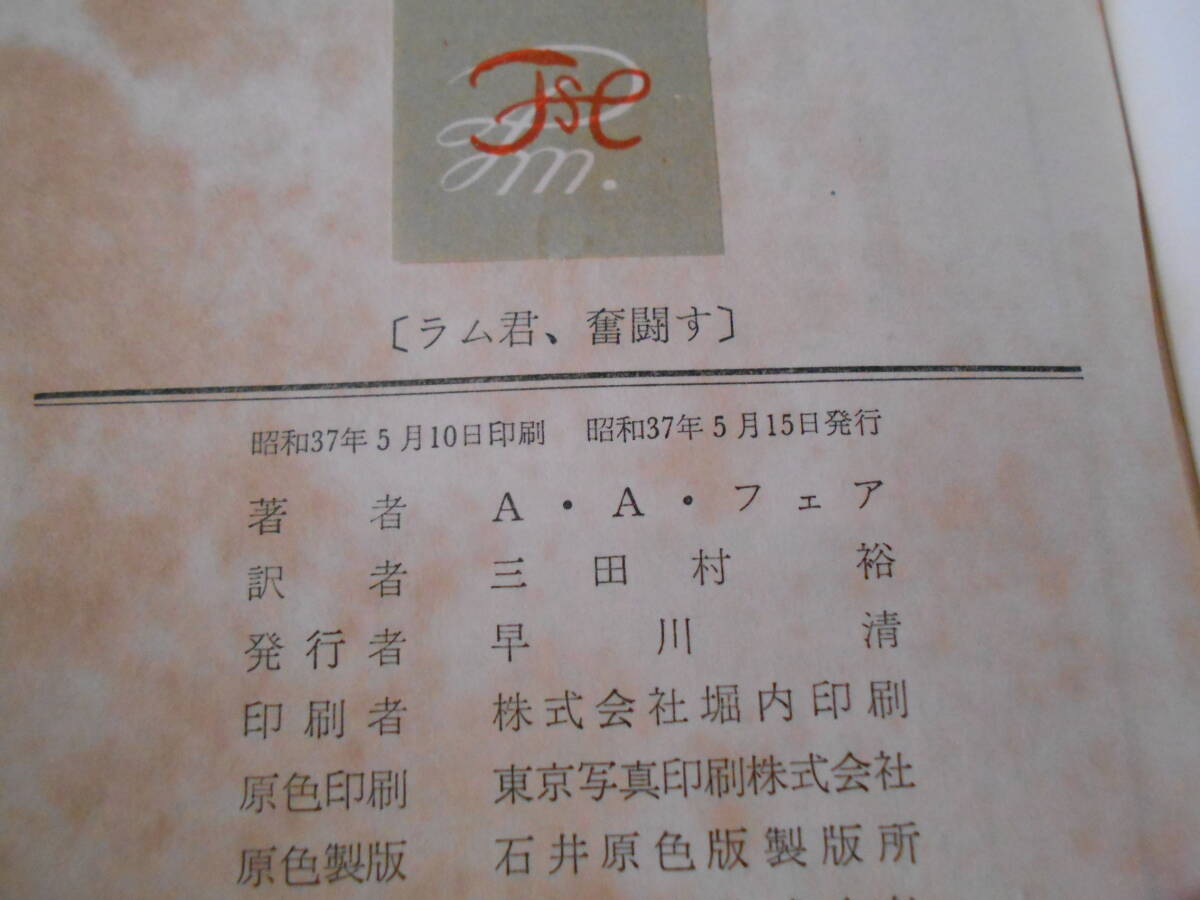 〔ラム君、奮闘す〕
昭和37年5月10日印刷 昭和37年5月15日発行
著者 A・A・フェア
訳者 三田村裕
発行者 早川清
印刷者 株式会社堀内印刷
原色印刷 東京写真印刷株式会社
原色製版 石井原色版製版所